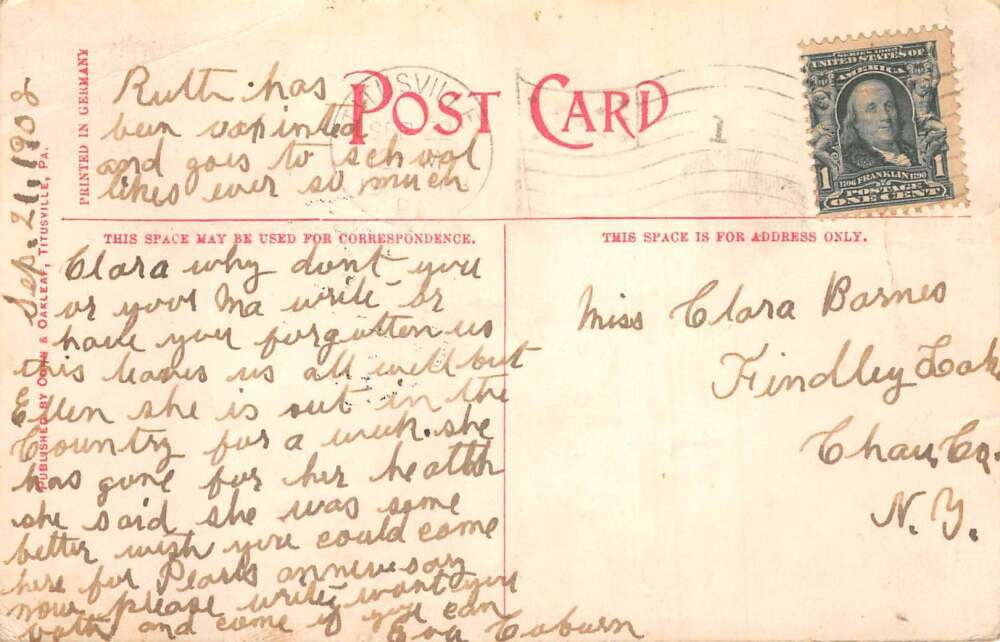 Sep. 21, 1908
PRINTED IN GERMANY
PUBLISHED BY & OAKLEAF, TITUSVILLE, PA.
POST CARD
TITUSVILLE
SEP
PA
1
SERIES 1902
UNITED STATES OF
AMERICA
1 1706 FRANKLIN 1790 1
POSTAGE
ONE CENT
Ruth has
been
and goes to school
likes ever so much
THIS SPACE MAY BE USED FOR CORRESPONDENCE.
THIS SPACE IS FOR ADDRESS ONLY.
Clara why dont you
or your Ma write or
have you forgotten us
this leaves us all well but
Ellen she is out in the
Country for a week. she
has gone for her health
she said she was some
better wish you could come
here for Pearls
now please write want you
both and come if you can
Eva Coburn
Miss Clara Barnes
Findley Lak
Chau, Co.
N. Y.